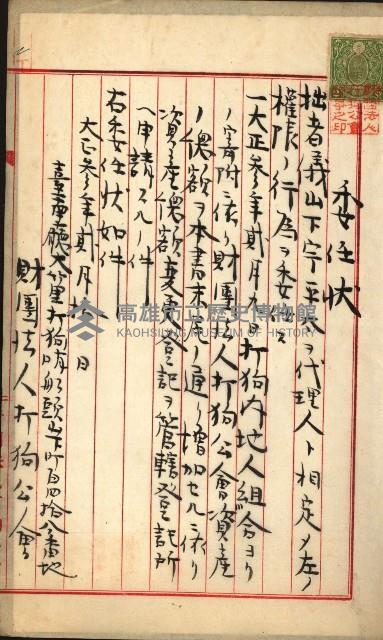 委任状
拙者儀山下宇平太ヲ代理人ト相定メ左ノ
權限ノ行為ヲ委任ス
一大正参年貳月 打狗内地人組合ヨリ
ノ寄附ニ依リ財團法人打狗公會資産
ノ價額ヲ本書末尾ノ通リ増加セルニ依リ
資産價額変更登記ヲ管轄登記所
ヘ申請スルノ件
右委任状如件
大正参年貳月 日
臺南廳大竹里打狗 船頭山下町 百四拾八番地
財團法人打狗公會
高雄市立歷史博物館
KAOHSIUNG MUSEUM OF HISTORY